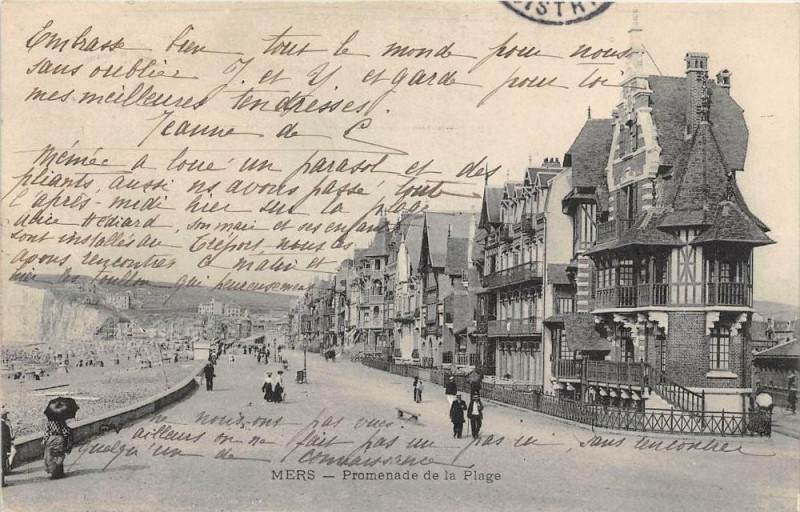 ISTR
Embrasse bien tout le monde pour nous
sans oublier J. et Y et garde pour toi
mes meilleures tendresses.
Jeanne de C
Mémée a loué un parasol et des
pliants, aussi ns avons passé tout
l'après-midi hier sur la plage
Alice Hédiard, son mari et ses enfants
sont installés au Tréport, nous les
avons rencontrés ce matin et
hier les qui heureusement
nous ont pas vus
d'ailleurs on ne fait pas un pas ici, sans rencontrer
quelqu'un de connaissance
MERS — Promenade de la Plage